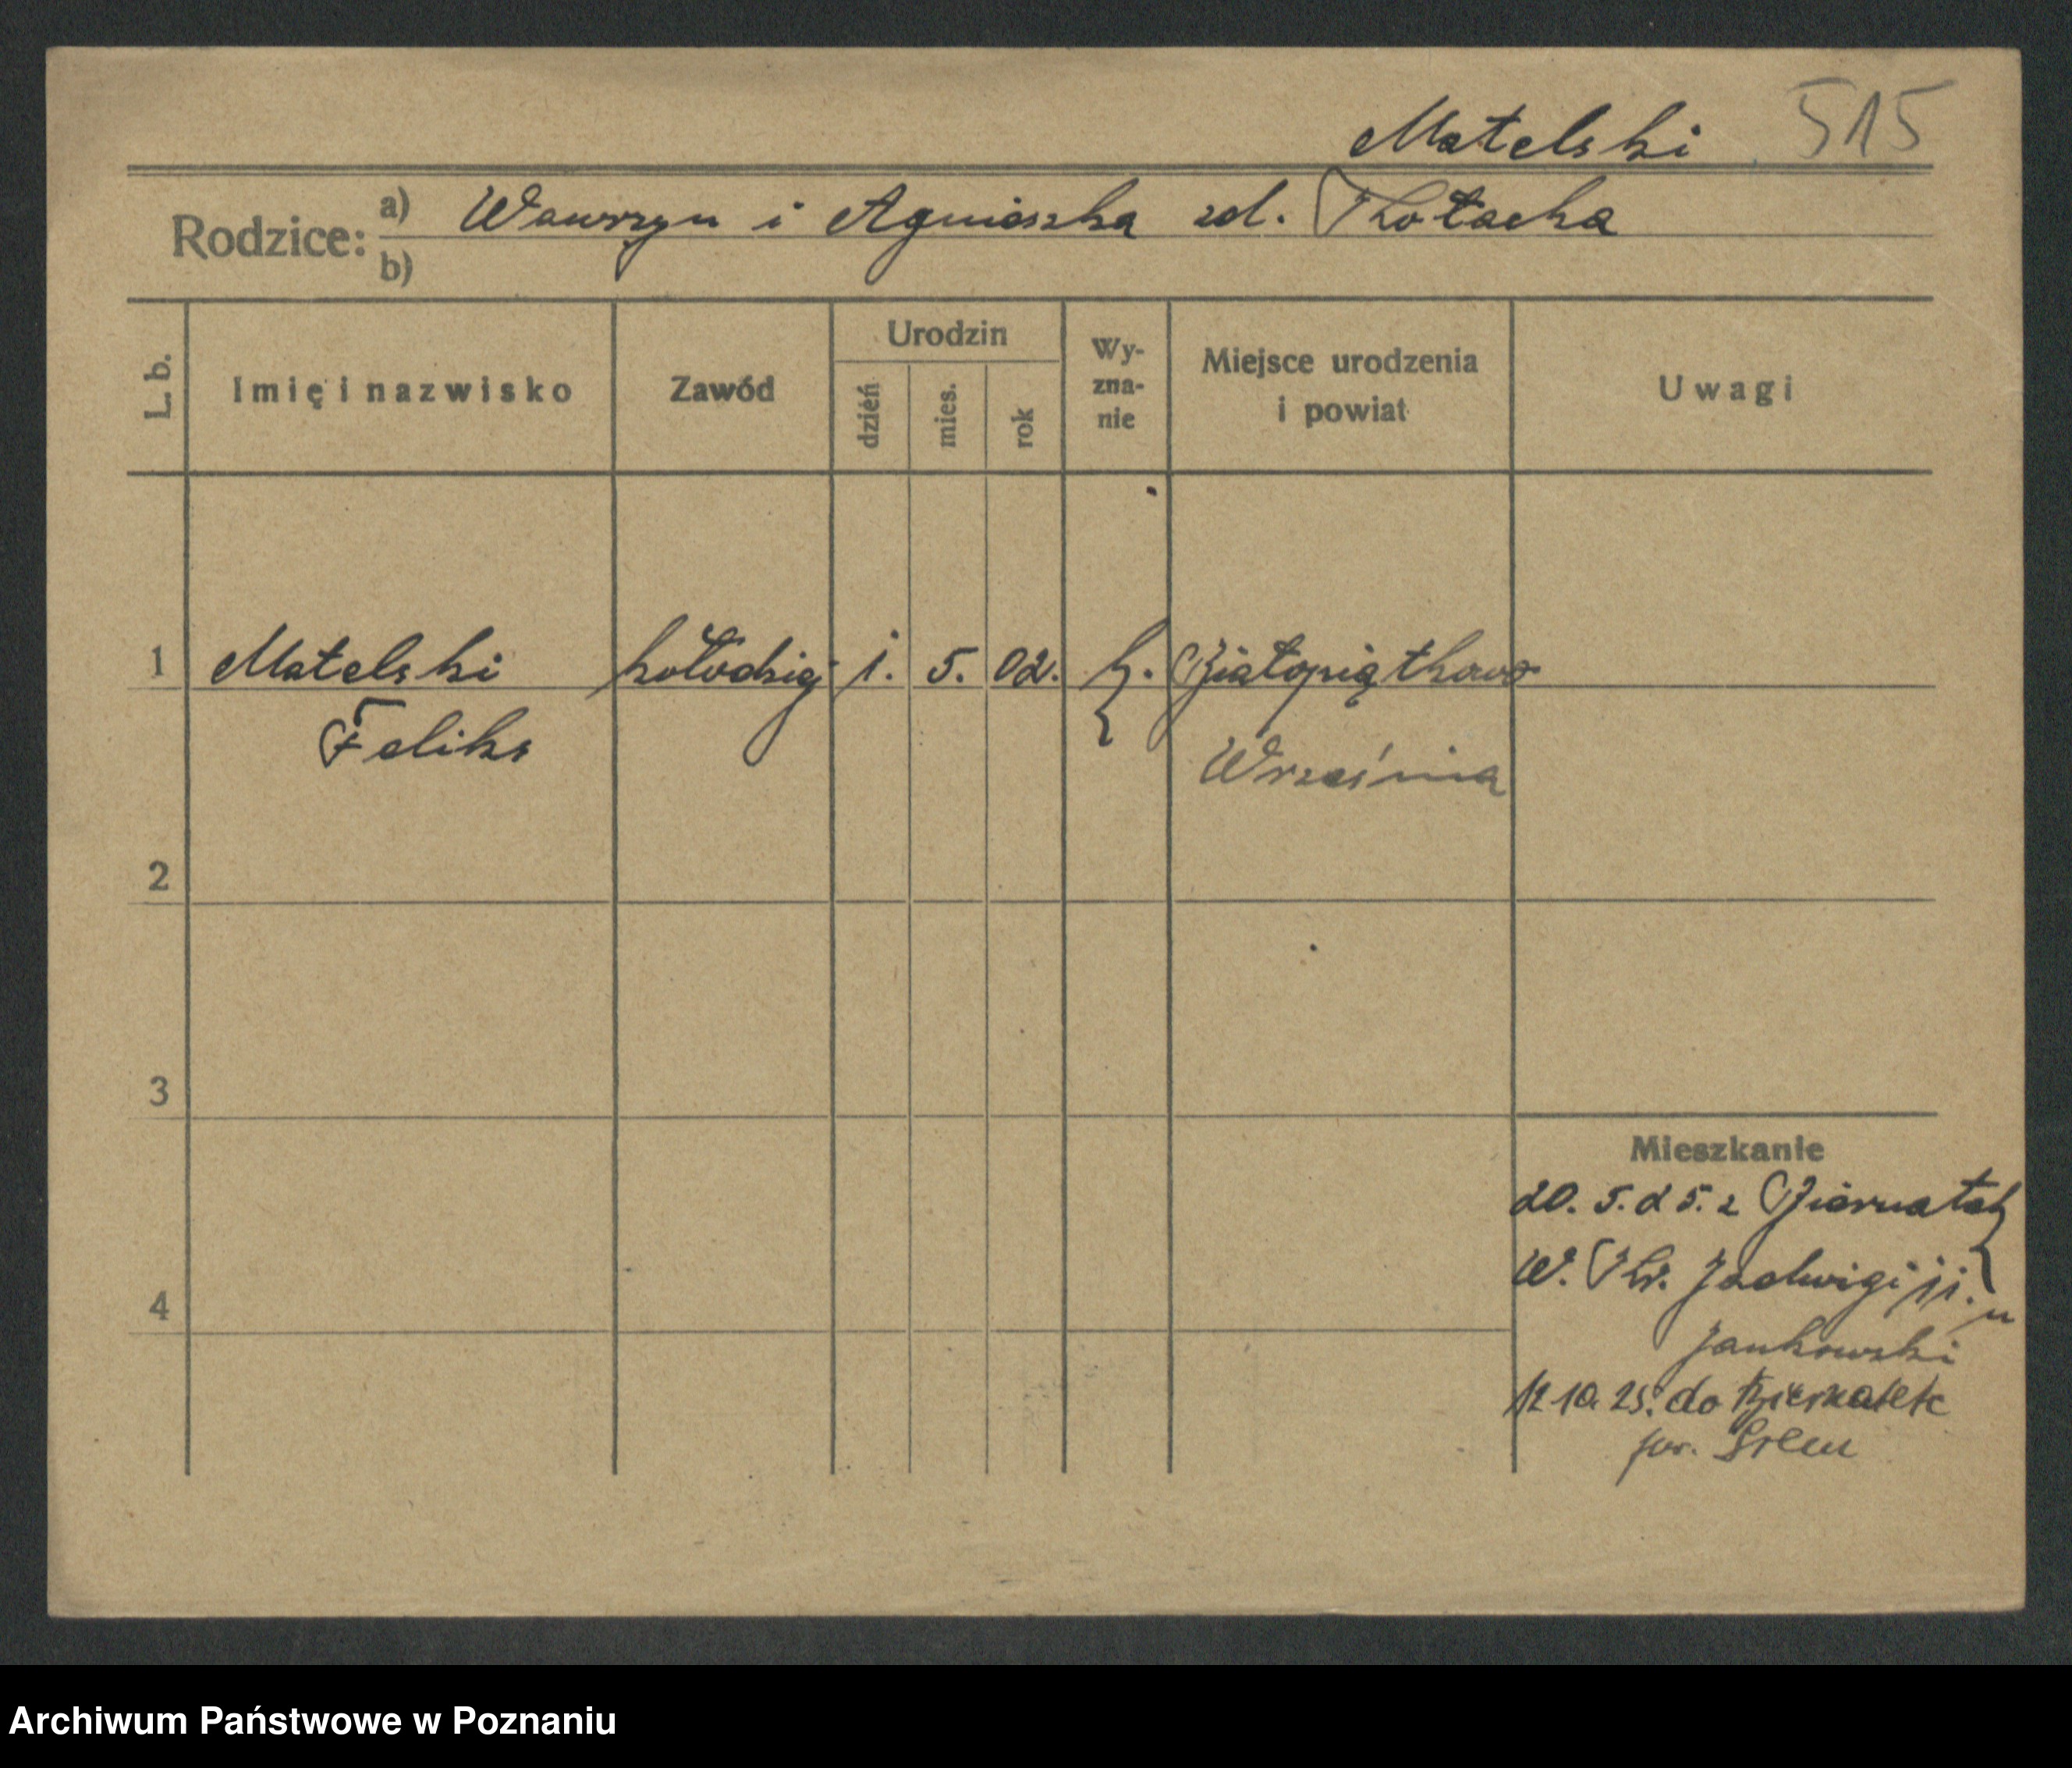 Matelski 515
Rodzice: a) Wawrzyn i Agnieszka zd.
b)
L. b.
Imię i nazwisko
Zawód
Urodzin
dzień
mies.
rok
Wy-
zna-
nie
Miejsce urodzenia
i powiat
Uwagi
1 Matelski kołodziej 1. 5. 02. k. Białopiątkowo
Feliks
Września
2
3
4
Mieszkanie
20. 5. 25. z Biernatek
W. Kr. Jadwigi 11. u
Jankowski
12 10. 25. do Biernatek
pow. Śrem
Archiwum Państwowe w Poznaniu